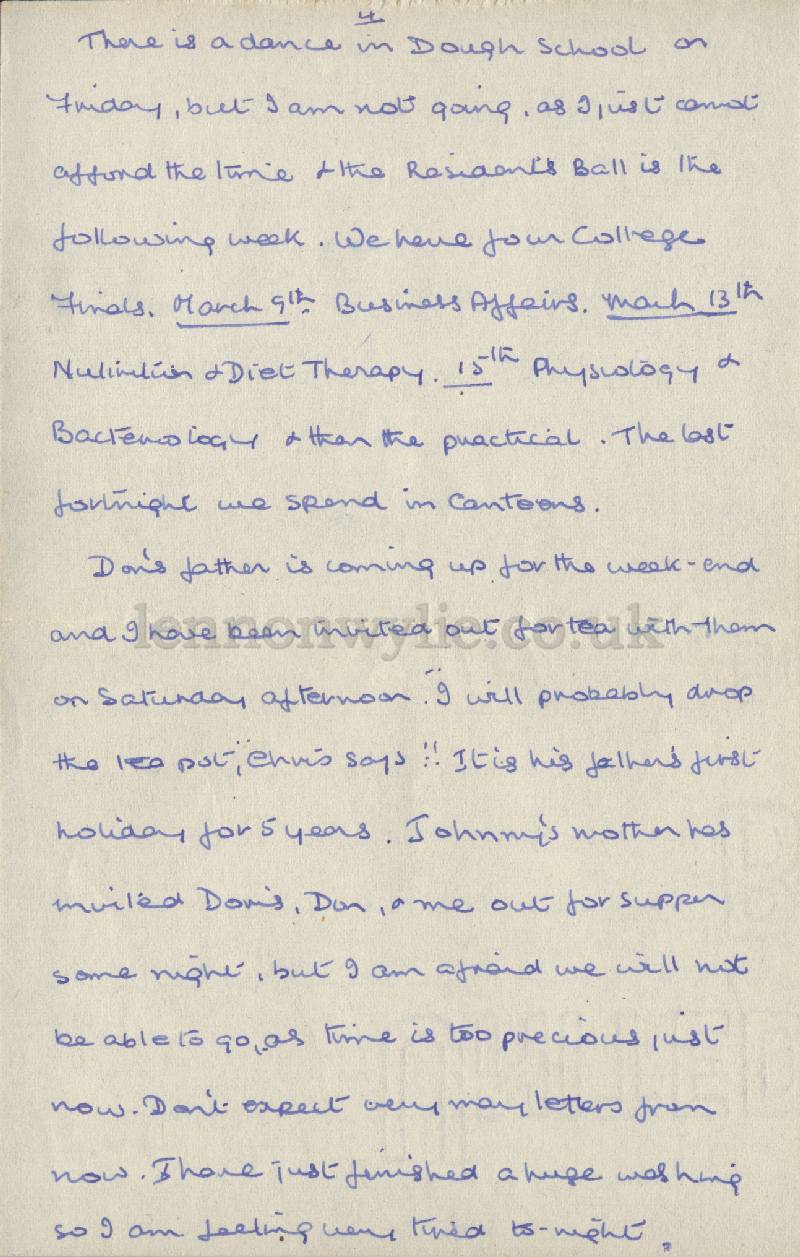 4
There is a dance in Dough School on
Friday, but I am not going, as I just cannot
afford the time & the Resident's Ball is the
following week. We have four College
Finals. March 9th. Business Affairs. March 13th
Nutrition & Diet Therapy. 15th Physiology &
Bacteriology & then the practical. The last
fortnight we spend in Canteens.
Don's father is coming up for the week-end
and I have been invited out for tea with them
on Saturday afternoon. "I will probably drop
the tea pot," Chris says !! It is his father's first
holiday for 5 years. Johnny's mother has
invited Doris, Don, & me out for supper
some night, but I am afraid we will not
be able to go, as time is too precious just
now. Don't expect very many letters from
now. I have just finished a huge washing
so I am feeling very tired to-night.
lennonwylie.co.uk